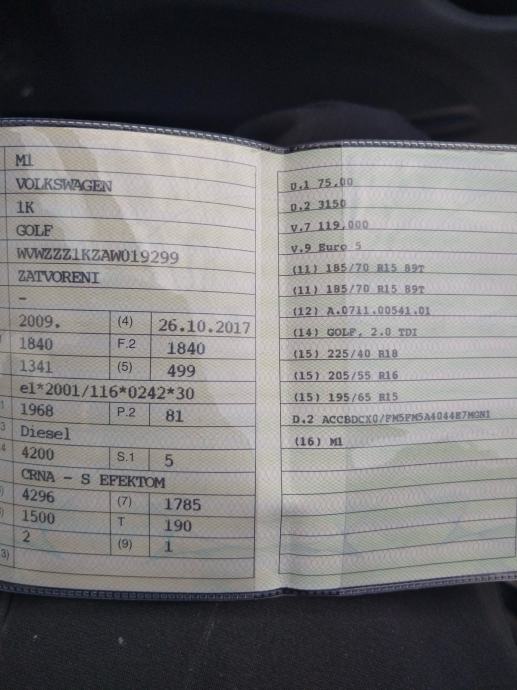 M1
VOLKSWAGEN
1K
GOLF
WVWZZZ1KZAW019299
ZATVORENI
-
2009. (4) 26.10.2017
1840 F.2 1840
1341 (5) 499
e1*2001/116*0242*30
1968 P.2 81
Diesel
4200 S.1 5
CRNA - S EFEKTOM
4296 (7) 1785
1500 T 190
2 (9) 1
U.1 75,00
U.2 3150
V.7 119,000
V.9 Euro 5
(11) 185/70 R15 89T
(11) 185/70 R15 89T
(12) A.0711.00541.01
(14) GOLF, 2.0 TDI
(15) 225/40 R18
(15) 205/55 R16
(15) 195/65 R15
D.2 ACCBDCX0/FM5FM5A4044E7MGN1
(16) M1